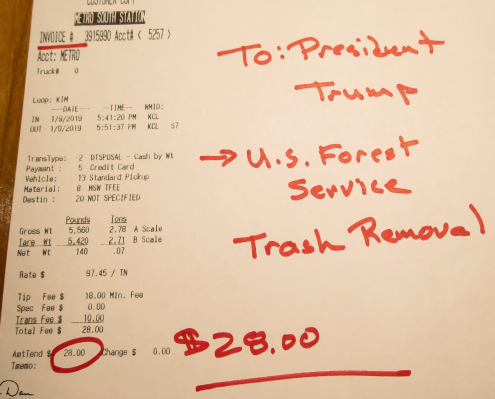 CUSTOMER COPY
METRO SOUTH STATION
INVOICE # 3915990 Acct# ( 5257 )
Acct: METRO
Truck# 0
Loop: KIM
---DATE--- --TIME-- WMID:
IN 1/9/2019 5:41:20 PM KCL
OUT 1/9/2019 5:51:37 PM KCL S7
TransType: 2 DISPOSAL - Cash by Wt
Payment : 5 Credit Card
Vehicle: 13 Standard Pickup
Material: 8 MSW TFEE
Destin : 20 NOT SPECIFIED
Pounds Tons
Gross Wt 5,560 2.78 A Scale
Tare Wt 5,420 2.71 B Scale
Net Wt 140 .07
Rate $ 97.45 / TN
Tip Fee $ 18.00 Min. Fee
Spec Fee $ 0.00
Trans Fee $ 10.00
Total Fee $ 28.00
AmtTend $ 28.00 Change $ 0.00
Tmemo:
Dan
To: President
Trump
→ U.S. Forest
Service
Trash Removal
$28.00